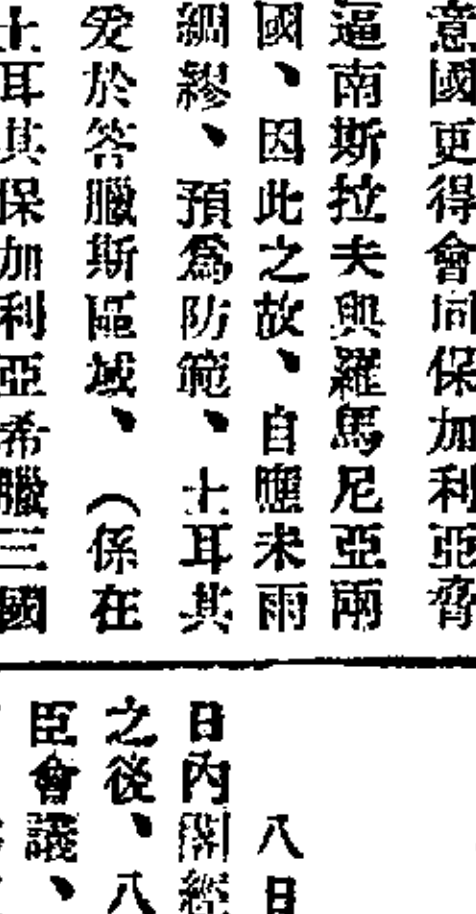 意國更得會同保加利亞脅
逼南斯拉夫與羅馬尼亞兩
國、因此之故、自應未雨
綢繆、預爲防範、土耳其
爰於答臘斯區域、（係在
土耳其保加利亞希臘三國
八日
日內閣經
之後、八
臣會議、